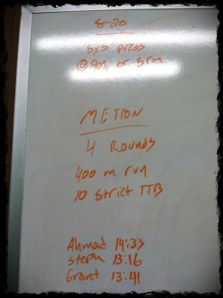 8-20
5x5 press
@ 90% of 5RM
METCON
4 Rounds
400 m run
10 strict TTB
Ahmad 14:33
13:16
Grant 13:41